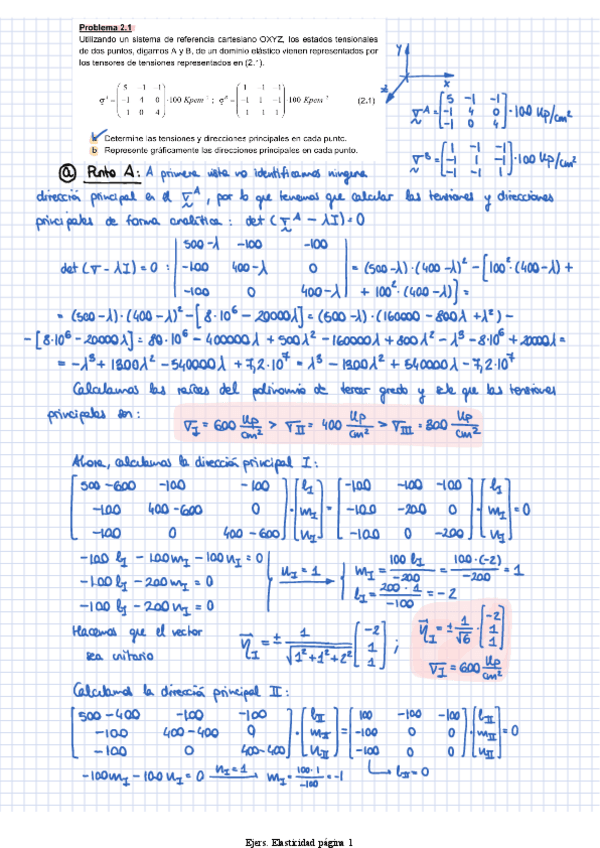 Problema 2.1
Utilizando un sistema de referencia cartesiano OXYZ, los estados tensionales
de dos puntos, digamos A y B, de un dominio elástico vienen representados por
los tensores de tensiones representados en (2.1).
σ^A = ( 5 -1 -1 ; -1 4 0 ; 1 0 4 ) ·100 Kpcm⁻² ; σ^B = ( 1 -1 -1 ; -1 1 -1 ; 1 1 1 ) ·100 Kpcm⁻² (2.1)
a Determine las tensiones y direcciones principales en cada punto.
b Represente gráficamente las direcciones principales en cada punto.
Y
X
Z
σ^A = [ 5 -1 -1 ; -1 4 0 ; -1 0 4 ] ·100 Kp/cm²
σ^B = [ 1 -1 -1 ; -1 1 -1 ; -1 -1 1 ] ·100 Kp/cm²
a Punto A: A primera vista no identificamos ninguna
dirección principal en el σ^A, por lo que tenemos que calcular las tensiones y direcciones
principales de forma analítica: det (σ^A - λI) = 0
det (σ - λI) = 0 : | 500-λ -100 -100 ; -100 400-λ 0 ; -100 0 400-λ | = (500-λ)·(400-λ)² - [100²·(400-λ) +
+ 100²·(400-λ)] =
= (500-λ)·(400-λ)² - [8·10⁶ - 20000λ] = (500-λ)·(160000 - 800λ + λ²) -
- [8·10⁶ - 20000λ] = 80·10⁶ - 400000λ + 500λ² - 160000λ + 800λ² - λ³ - 8·10⁶ + 20000λ =
= -λ³ + 1300λ² - 540000λ + 7,2·10⁷ = λ³ - 1300λ² + 540000λ - 7,2·10⁷
Calculamos las raíces del polinomio de tercer grado y sale que las tensiones
principales son: σ_I = 600 Kp/cm² > σ_II = 400 Kp/cm² > σ_III = 300 Kp/cm²
Ahora, calculamos la dirección principal I:
[ 500-600 -100 -100 ; -100 400-600 0 ; -100 0 400-600 ] · [ l_I ; m_I ; n_I ] = [ -100 -100 -100 ; -100 -200 0 ; -100 0 -200 ] [ l_I ; m_I ; n_I ] = 0
-100 l_I - 100 m_I - 100 n_I = 0
-100 l_I - 200 m_I = 0
-100 l_I - 200 n_I = 0
n_I = 1
m_I = 100 l_I / -200 = 100·(-2) / -200 = 1
l_I = 200·1 / -100 = -2
Hacemos que el vector
sea unitario
η_I = ± 1/√(1²+1²+2²) [ -2 ; 1 ; 1 ] ;
η_I = ± 1/√6 · [ -2 ; 1 ; 1 ]
σ_I = 600 Kp/cm²
Calculamos la dirección principal II:
[ 500-400 -100 -100 ; -100 400-400 0 ; -100 0 400-400 ] · [ l_II ; m_II ; n_II ] = [ 100 -100 -100 ; -100 0 0 ; -100 0 0 ] [ l_II ; m_II ; n_II ] = 0
-100 m_I - 100 n_I = 0 n_I = 1 m_I = 100·1 / -100 = -1
l_II = 0
Ejers. Elasticidad página 1